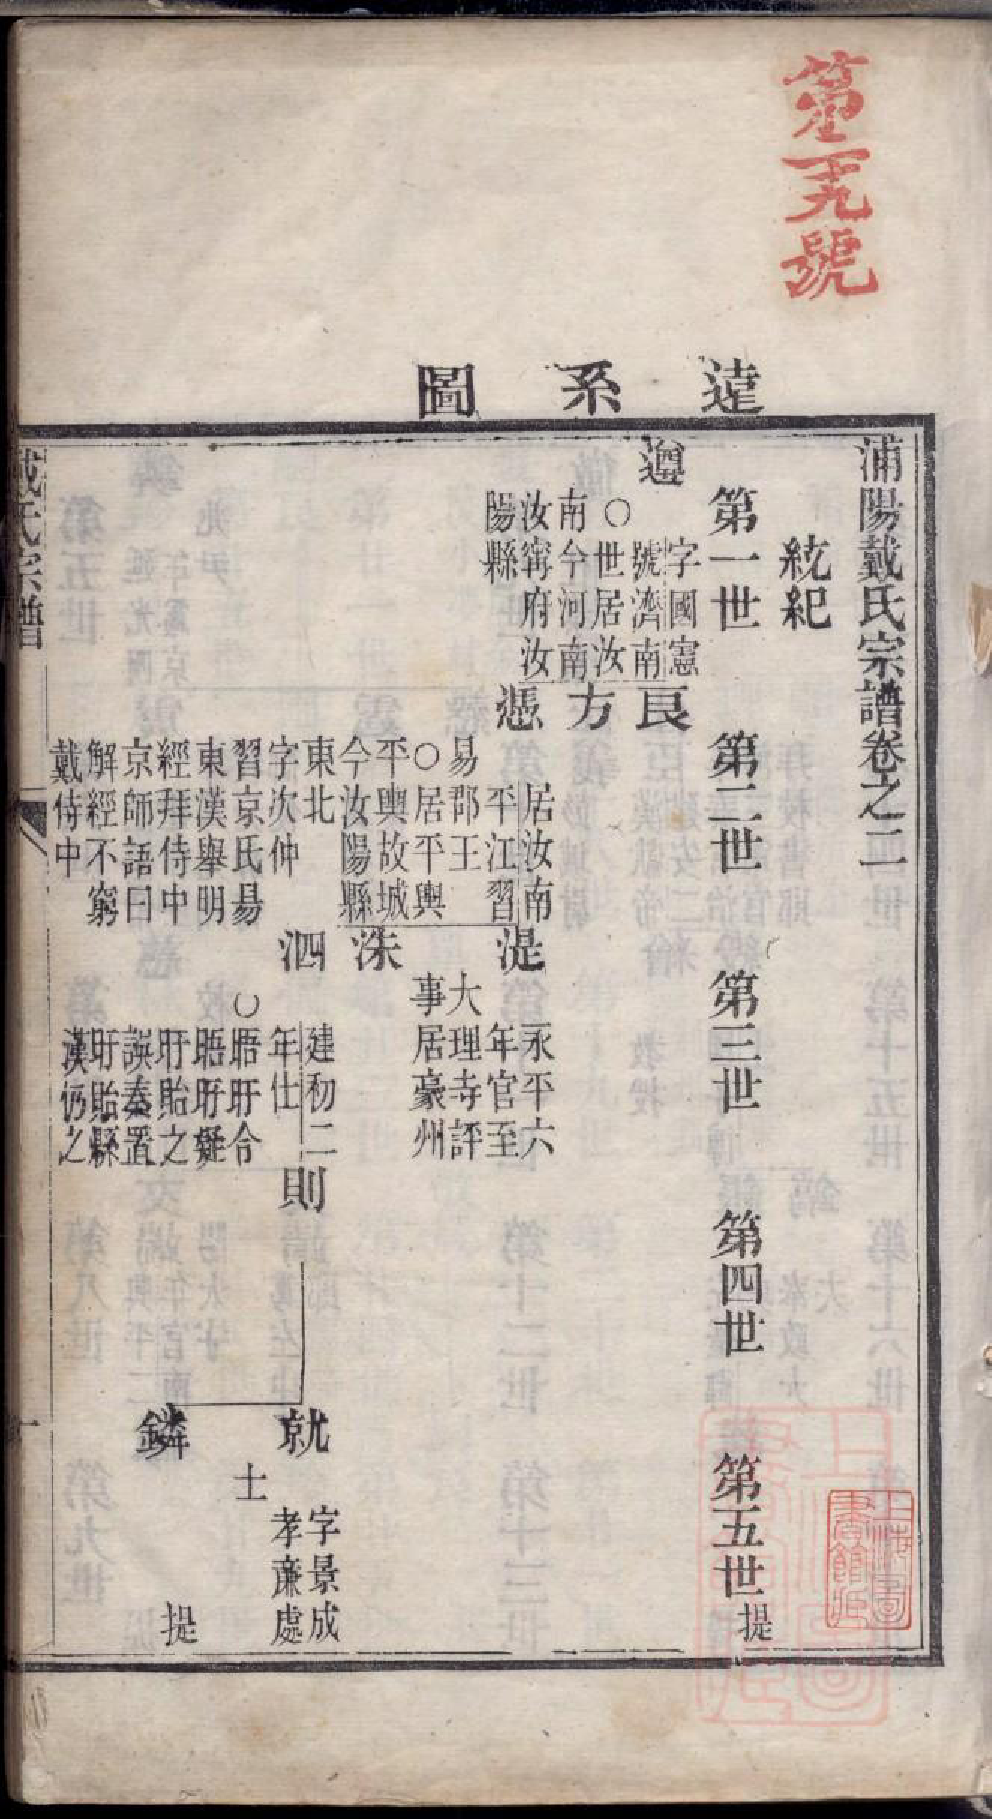 第一百十九號
遠系圖
浦陽戴氏宗譜卷之二
統紀
第一世
第二世
第三世
第四世
第五世
提
遵
字國憲
號濟南
○世居汝
南今河南
汝寧府汝
陽縣
良
方
憑
居汝南
平江習
易郡王
○居平輿
平輿故城
今汝陽縣
東北
字次仲
習京氏易
東漢舉明
經拜侍中
京師語曰
解經不窮
戴侍中
湜
洙
泗
永平六
年官至
大理寺評
事居豪州
建初二
年仕
○晤盱合
晤盱疑
盱貽之
誤秦置
盱貽縣
漢仍之
則
就
鏻
字景成
孝廉處
士
提
戴氏宗譜
一
上海圖書館印